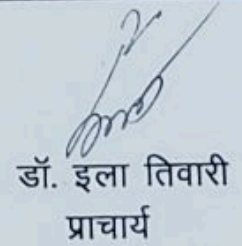 डॉ. इला तिवारी
प्राचार्य